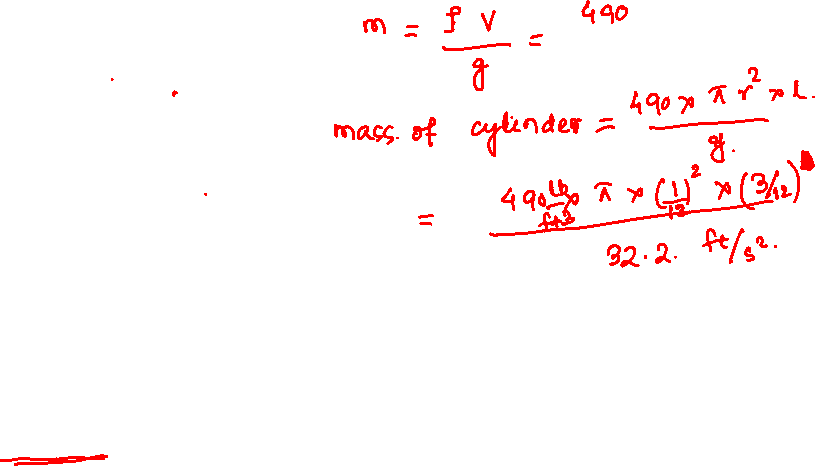 m = ρ V / g = 490
mass. of cylinder = 490 × π r² × L. / g.
= 490 lb/ft3 × π × (1/12)² × (3/12) / 32.2. ft/s².